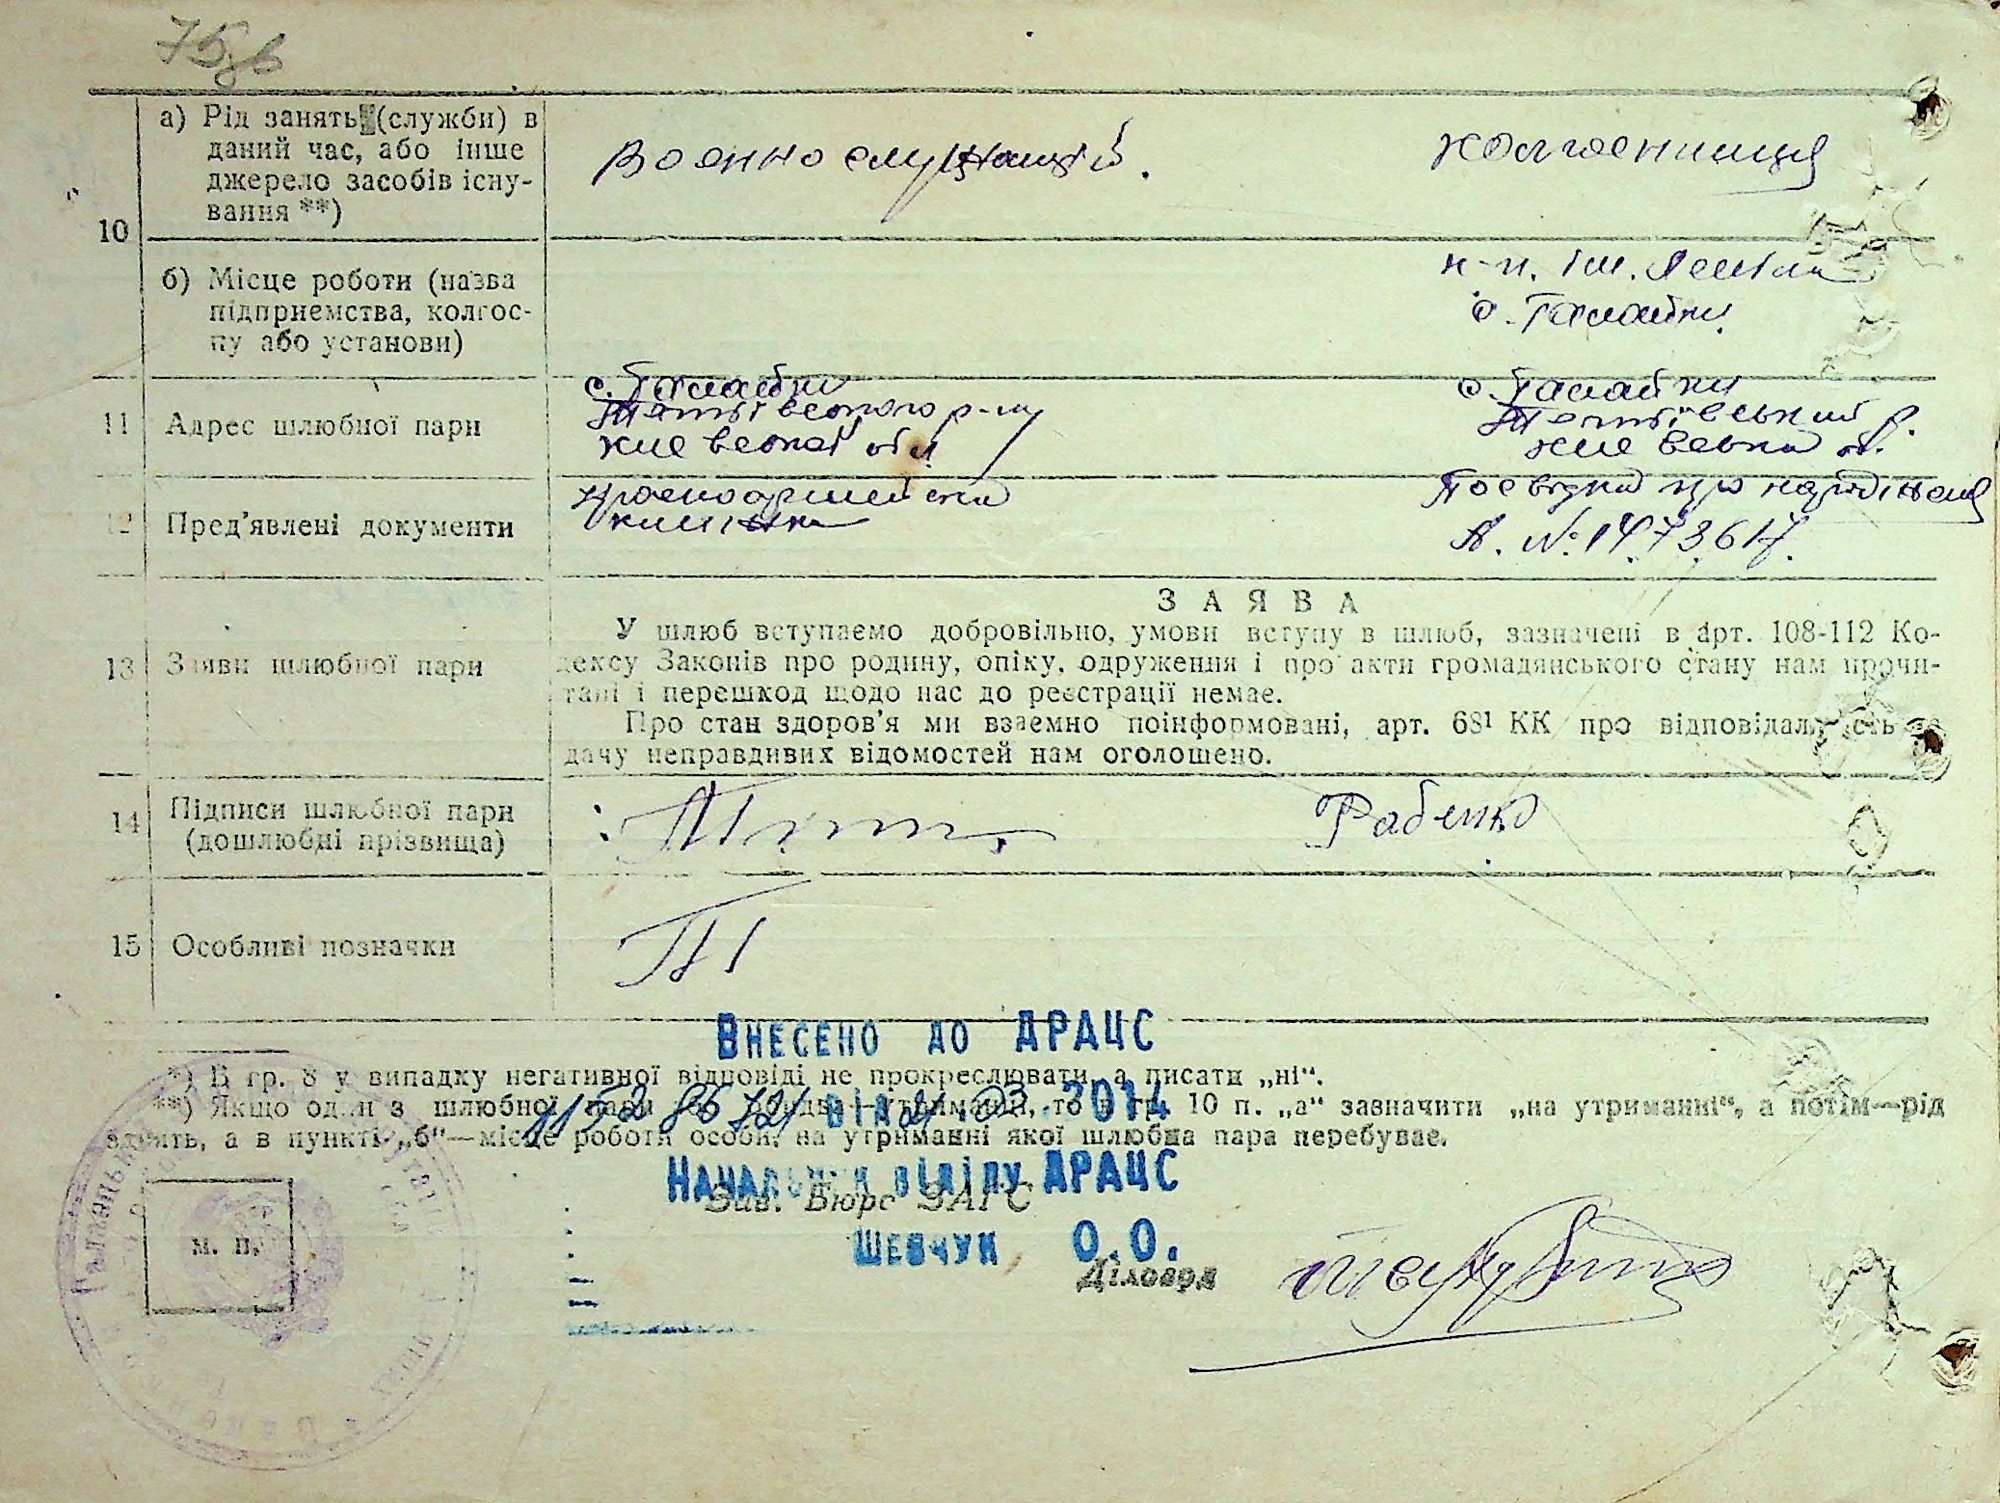 а) Рід занять (служби) в
даний час, або інше
джерело засобів існу-
вання **)
Военнослужащий.
колгоспниця
10
б) Місце роботи (назва
підприємства, колгос-
пу або установи)
к-п. ім. Леніна
с. Галайки
11
Адрес шлюбної пари
с. Галайки
Тетіївського р-ну
Київської обл
с. Галайки
Тетіївський р.
Київська об.
12
Пред'явлені документи
Красноармейська
книжка
Посвідка про народження
А. №:
13
Заяви шлюбної пари
ЗАЯВА
У шлюб вступаємо добровільно, умови вступу в шлюб, зазначені в арт. 108-112 Ко-
дексу Законів про родину, опіку, одруження і про акти громадянського стану нам прочи-
тані і перешкод щодо нас до реєстрації немає.
Про стан здоров'я ми взаємно поінформовані, арт. 68¹ КК про відповідальність за
дачу неправдивих відомостей нам оголошено.
14
Підписи шлюбної пари
(дошлюбні прізвища)
15
Особливі позначки
Внесено до ДРАЦС
*) В гр. 8 у випадку негативної відповіді не прокреслювати, а писати „ні“.
від 21.03.2014
**) Якщо один з шлюбної пари на утриманні, то в гр. 10 п. „а“ зазначити „на утриманні“, а потім—рід
занять, а в пункті „б“—місце роботи особи, на утриманні якої шлюбна пара перебуває.
Начальник відділу ДРАЦС
Зав. Бюро ЗАГС
Шевчук О.О.
м. п.
Діловод